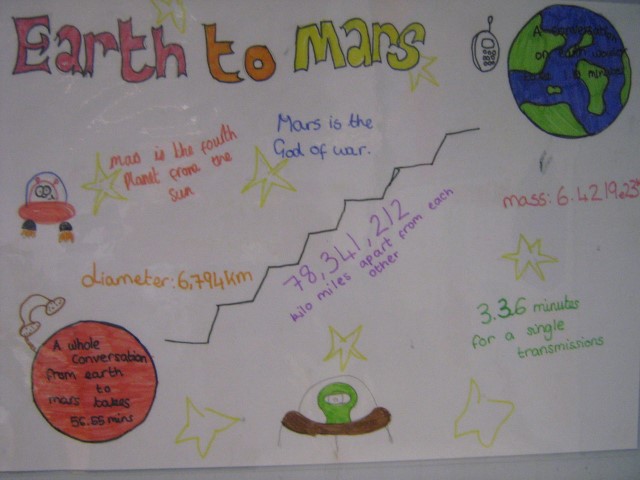 Earth to Mars
A conversation
on earth would
take 10 minutes
Mars is the
God of war.
mas is the fourth
Planet from the
sun
mass: 6.4219
diameter: 6,794km
78,341,212
kilo miles apart from each
other
3.36 minutes
for a single
transmissions
A whole
conversation
from earth
to
mars takes
56.55 mins